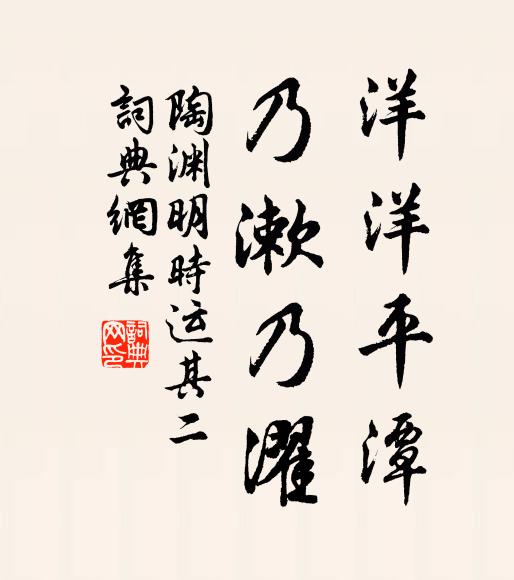 洋洋平潭
乃漱乃濯
陶渊明時运其二
詞典網集
詞典网印